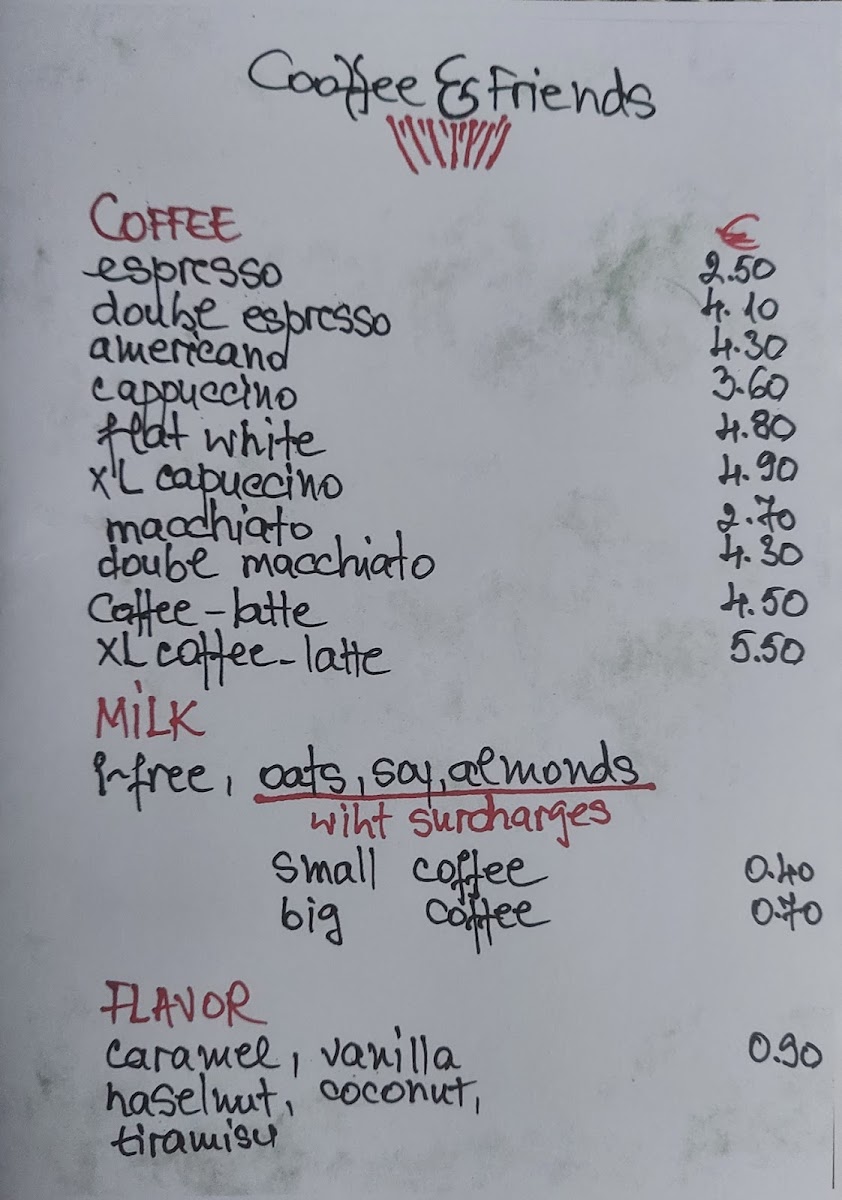 Cooffee & Friends
COFFEE €
espresso 2.50
doube espresso 4.10
americano 4.30
cappuccino 3.60
flat white 4.80
XL capuccino 4.90
macchiato 2.70
doube macchiato 4.30
Coffee-latte 4.50
XL coffee-latte 5.50
MiLK
l-free, oats, soy, almonds
wiht surcharges
small coffee 0.40
big coffee 0.70
FLAVOR
caramel, vanilla 0.90
haselnut, coconut,
tiramisu